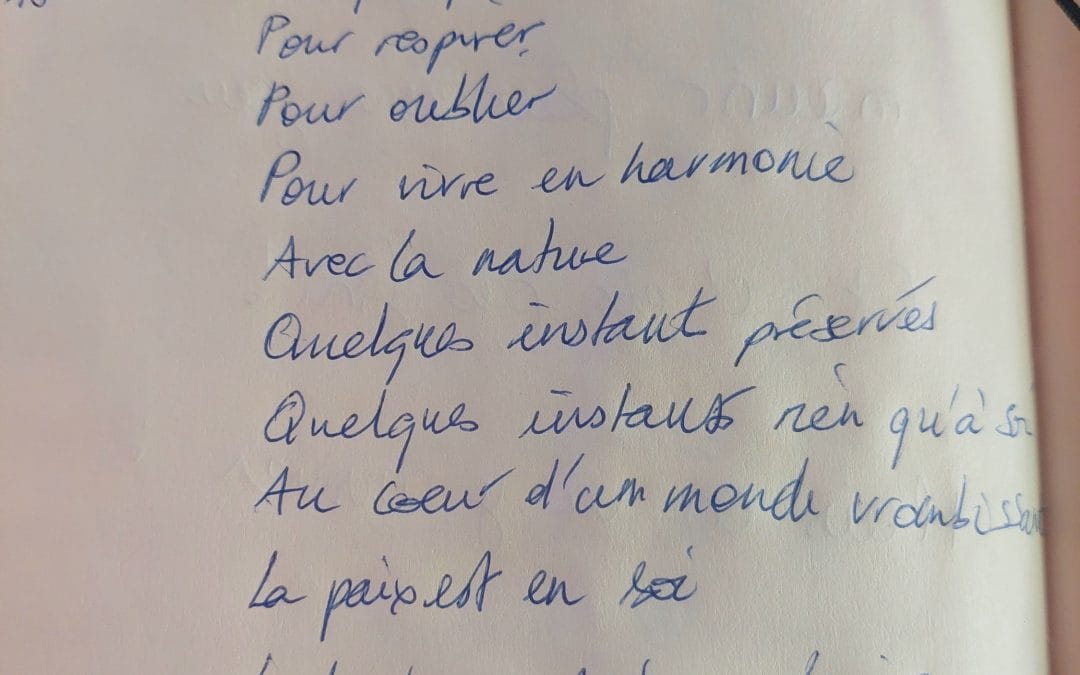 Pour respirer
Pour oublier
Pour vivre en harmonie
Avec la nature
Quelques instant préservés
Quelques instants rien qu'à soi
Au coeur d'un monde vrombissant
La paix est en soi